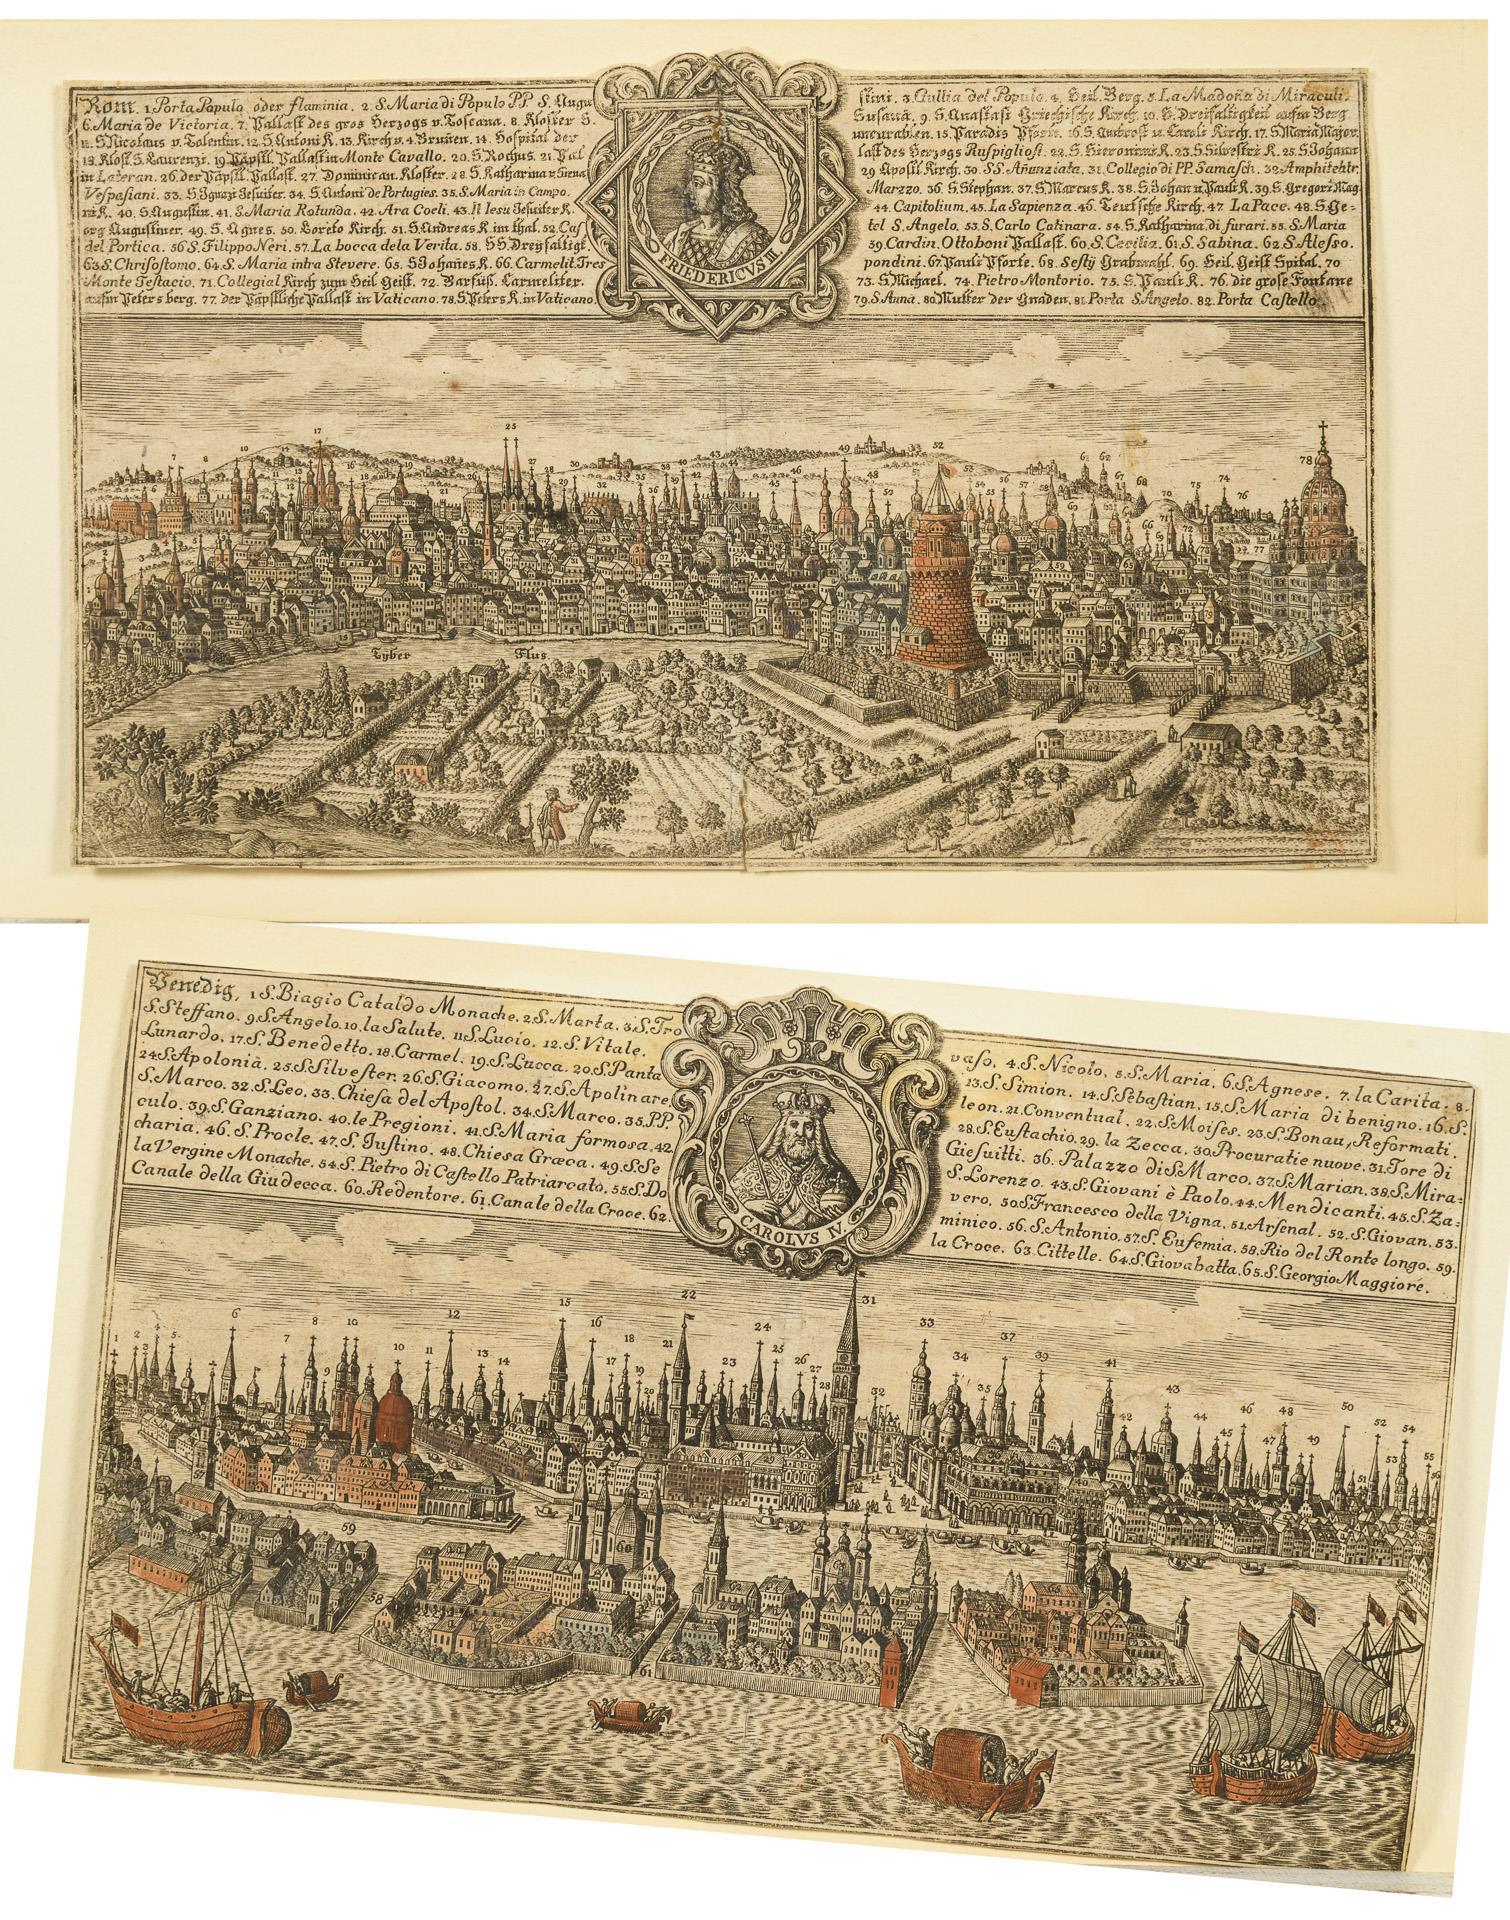 Rom. 1. Porta Populo oder flaminia. 2. S. Maria di Populo PP. S. Augu
stini. 3. Gullia del Populo. 4. Heil. Berg. 5. La Madoña di Miraculi.
6. Maria de Victoria. 7. Pallast des gros Herzogs v. Toscana. 8. Kloster S.
Susaña. 9. S. Anastasi Griechische Kirch. 10. H. Dreifaltigkeit auf'm Berg
11. S. Nicolaus v. Tolentin. 12. S. Antoni K. 13. Kirch v. 4. Bruñen. 14. Hospital der
uncurablen. 15. Paradis Pforte. 16. S. Ambrosi u. Carole Kirch. 17. S. Maria Major.
18. Klost. S. Laurenzi. 19. Päpstl. Pallast in Monte Cavallo. 20. S. Rochus. 21. Pal
last des Herzogs Ruspigliosi. 22. S. Hieronimi K. 23. S. Silvestri K. 25. S. Johann
in Lateran. 26. der Päpstl. Pallast. 27. Dominican. Kloster. 28. S. Katharina v. Siena.
29 Apostl. Kirch. 30. SS. Añunziata. 31. Collegio di PP. Samasch. 32. Amphitehtr.
Vespasiani. 33. S. Ignazi Jesuiter. 34. S. Antoni de Portugies. 35. S. Maria in Campo.
Marzzo. 36. S. Stephan. 37. S. Marcus K. 38. S. Johan u. Pauli K. 39. S. Gregori Mag
ni K. 40. S. Augustin. 41. S. Maria Rotunda. 42. Ara Coeli. 43. Il Iesu Jesuiter K.
44. Capitolium. 45. La Sapienza. 46. Teutsche Kirch. 47. La Pace. 48. S. Ge=
org Augustiner. 49. S. Agnes. 50. Loreto Kirch. 51. S. Andreas K. im thal. 52. Cas
tel S. Angelo. 53. S. Carlo Catinara. 54. S. Katharina di furari. 55. S. Maria
del Portica. 56. S. Filippo Neri. 57. La bocca dela Verita. 58. SS. Dreyfaltigk.
59. Cardin. Ottoboni Pallast. 60. S. Cecilia. 61. S. Sabina. 62. S. Alesso.
63. S. Chrisostomo. 64. S. Maria intra Stevere. 65. S. Johañes K. 66. Carmelit. Tres
pondini. 67. Pauli Pforte. 68. Sesty Grabmahl. 69. Heil. Geist Spital. 70
Monte Testacio. 71. Collegial Kirch zum Heil Geist. 72. Barfüs. Carmeliter.
73. S. Michael. 74. Pietro Montorio. 75. S. Pauli K. 76. die grose Fontane
auf'm Peters berg. 77. der Päpstliche Pallast in Vaticano. 78. S. Peters K. in Vaticano.
79. S. Anna. 80. Mutter der Gnaden. 81. Porta S. Angelo. 82. Porta Castello.
FRIDERICVS III.
Tyber Flus
Venedig, 1 S. Biagio Cataldo Monache. 2. S. Marta. 3. S. Tro
vaso. 4. S. Nicolo. 5. S. Maria. 6. S. Agnese. 7. la Carita. 8.
S. Steffano. 9. S. Angelo. 10. la Salute. 11. S. Lucio. 12. S. Vitale.
13. S. Simion. 14. S. Sebastian. 15. S. Maria di benigno. 16. S.
Lunardo. 17. S. Benedetto. 18. Carmel. 19. S. Lucca. 20. S. Panta
leon. 21. Conventual. 22. S. Moises. 23. S. Bonau, Reformati.
24. S. Apolonia. 25. S. Silvester. 26. S. Giacomo. 27. S. Apolinare.
28. S. Eustachio. 29. la Zecca. 30. Procuratie nuove. 31. Tore di
S. Marco. 32. S. Leo. 33. Chiesa del Apostol. 34. S. Marco. 35. PP.
Giesuitti. 36. Palazzo di S. Marco. 37. S. Marian. 38. S. Mira=
culo. 39. S. Ganziano. 40. le Pregioni. 41. S. Maria formosa. 42.
S. Lorenzo. 43. S. Giovani è Paolo. 44. Mendicanti. 45. S. Za=
charia. 46. S. Procle. 47. S. Justino. 48. Chiesa Græca. 49. S. Se
vero. 50. S. Francesco della Vigna. 51. Arsenal. 52. S. Giovan. 53.
la Vergine Monache. 54. S. Pietro di Castello Patriarcato. 55. S. Do
minico. 56. S. Antonio. 57. S. Eufemia. 58. Rio del Ronte longo. 59.
Canale della Giudecca. 60. Redentore. 61. Canale della Croce. 62.
la Croce. 63. Cittelle. 64. S. Giovabatta. 65. S. Georgio Maggiore.
CAROLVS IV.